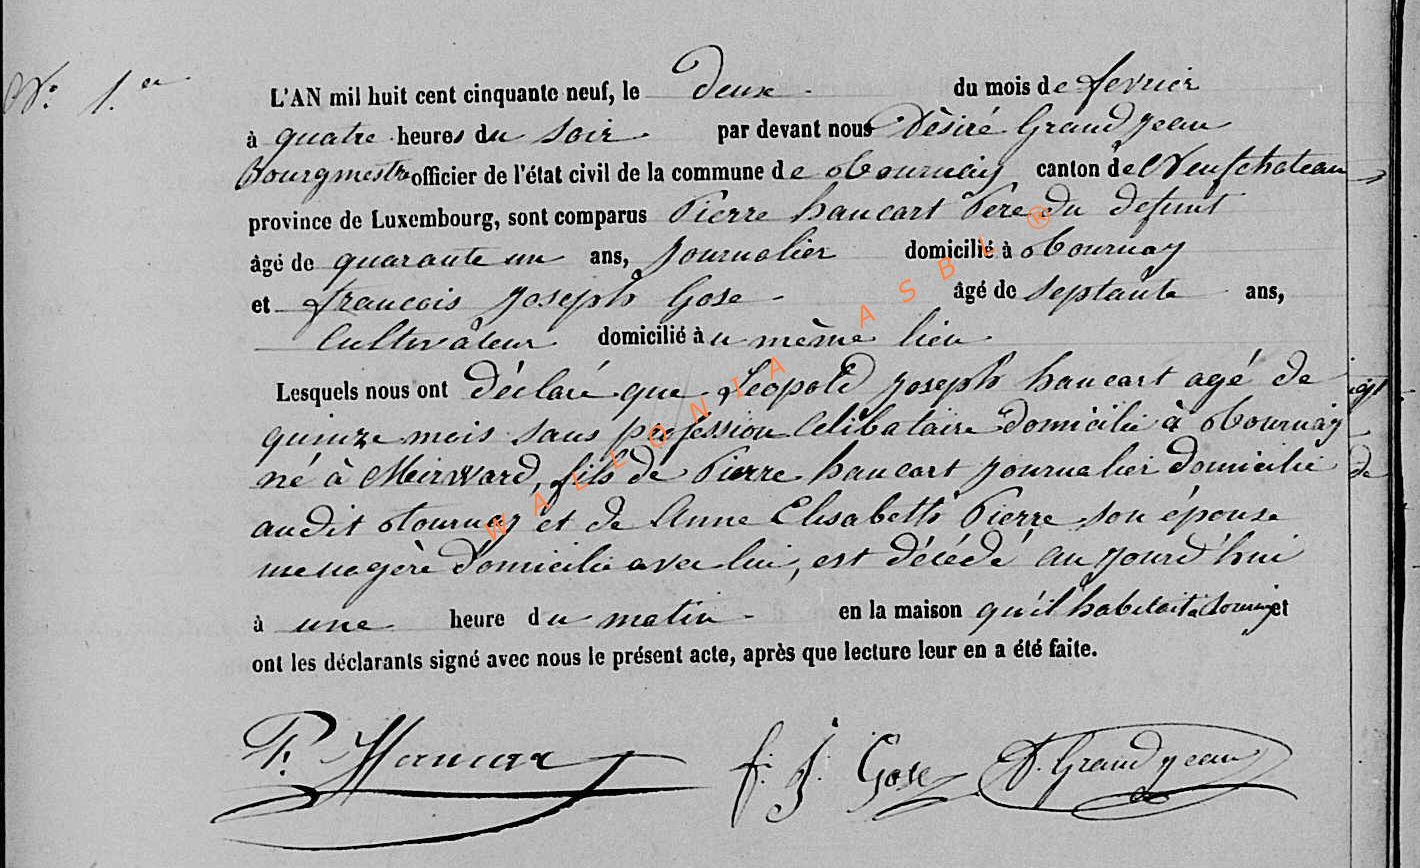 N.° 1.er
L'AN mil huit cent cinquante neuf, le deux du mois de fevrier
à quatre heures du soir par devant nous Dèsiré Grandjean
Bourgmestre officier de l'état civil de la commune de Tournay canton de Neufchateau
province de Luxembourg, sont comparus Pierre hancart Père du defunt
âgé de quarante un ans, journalier domicilié à Tournay
et francois joseph Gose âgé de septante ans,
Cultivâteur domicilié à u même lieu
Lesquels nous ont déclaré que Léopold joseph hancart agé de
quinze mois sans profession Celibataire domicilié à Tournay
né à Mirward, fils de Pierre hancart journalier domicilié
audit Tournay et de Anne Elisabeth Pierre son épouse
menagère domicilié avec lui, est décédé aujourd'hui
à une heure du matin en la maison qu'il habitait a Tournay et
ont les déclarants signé avec nous le présent acte, après que lecture leur en a été faite.
P. Hancar f. J. Gose D. Grandjean
WALLONIA ASBL ®